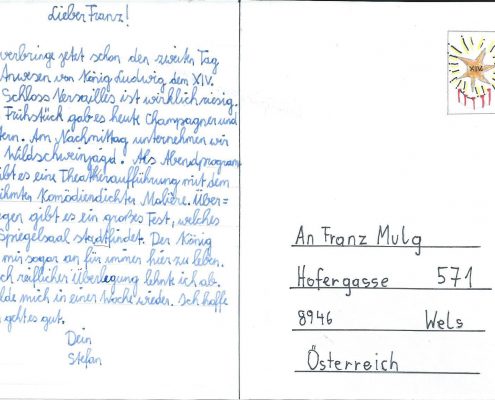 Lieber Franz!
verbringe jetzt schon den zweiten Tag
Anwesen von König Ludwig dem XIV.
Schloss Versailles ist wirklich riesig.
Frühstück gab es heute Champagner und
tern. Am Nachmittag unternehmen wir
Wildschweinjagd. Als Abendprogramm
ibt es eine Theateraufführung mit dem
ühmten Komödiendichter Moliere. Über=
gen gibt es ein großes Fest, welches
Spiegelsaal stadtfindet. Der König
mir sogar an für immer hier zu leben.
ch reiflicher Überlegung lehnte ich ab.
lde mich in einer Woche wieder. Ich hoffe
geht es gut.
Dein
Stefan
XIV.
An Franz Mulg
Hofergasse 571
8946 Wels
Österreich